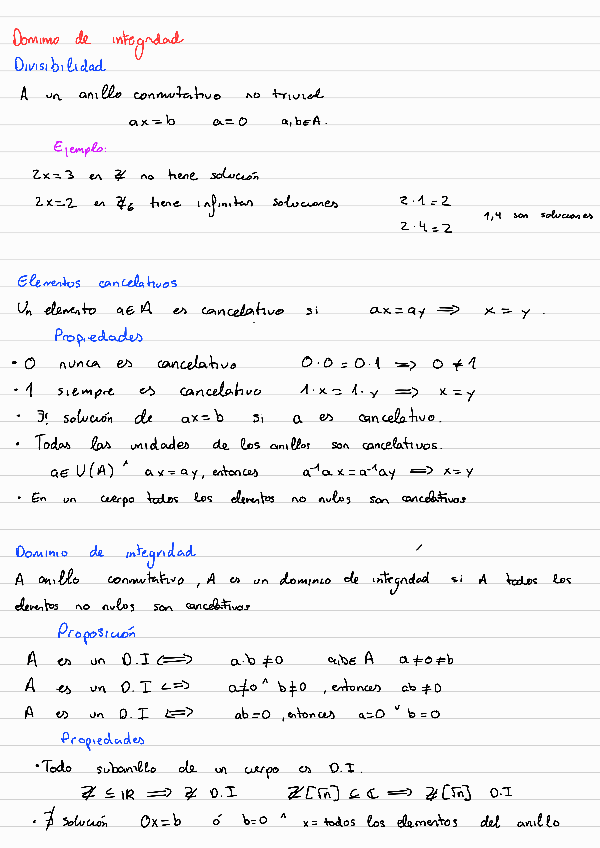 Dominio de integridad
Divisibilidad
A un anillo conmutativo no trivial
ax=b a=0 a,b∈A.
Ejemplo:
2x=3 en ℤ no tiene solución
2x=2 en ℤ₆ tiene infinitas soluciones 2·1=2
2·4=2 1,4 son soluciones
Elementos cancelativos
Un elemento a∈A es cancelativo si ax=ay ⟹ x=y.
Propiedades
• 0 nunca es cancelativo 0·0=0·1 ⟹ 0≠1
• 1 siempre es cancelativo 1·x=1·y ⟹ x=y
• ∃! solución de ax=b si a es cancelativo.
• Todas las unidades de los anillos son cancelativos.
a∈U(A) ^ ax=ay, entonces a⁻¹ax=a⁻¹ay ⟹ x=y
• En un cuerpo todos los elementos no nulos son cancelativos
Dominio de integridad
A anillo conmutativo, A es un dominio de integridad si A todos los
elementos no nulos son cancelativos
Proposición
A es un D.I ⟺ a·b≠0 a,b∈A a≠0≠b
A es un D.I ⟺ a≠0 ^ b≠0, entonces ab≠0
A es un D.I ⟺ ab=0, entonces a=0 ˅ b=0
Propiedades
• Todo subanillo de un cuerpo es D.I.
ℤ ⊆ ℝ ⟹ ℤ D.I ℤ[√n] ⊆ ℂ ⟹ ℤ[√n] D.I
• ∄ solución 0x=b ó b=0 ^ x=todos los elementos del anillo